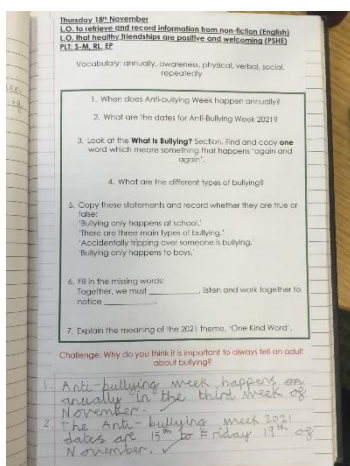 Thursday 18th November
L.O. to retrieve and record information from non-fiction (English)
L.O. that healthy friendships are positive and welcoming (PSHE)
PLT: S-M, RL, EP
Vocabulary: annually, awareness, physical, verbal, social,
repeatedly
1. When does Anti-bullying Week happen annually?
2. What are the dates for Anti-Bullying Week 2021?
3. Look at the What Is Bullying? Section. Find and copy one
word which means something that happens 'again and
again'.
4. What are the different types of bullying?
5. Copy these statements and record whether they are true or
false:
'Bullying only happens at school.'
'There are three main types of bullying.'
'Accidentally tripping over someone is bullying.'
'Bullying only happens to boys.'
6. Fill in the missing words:
Together, we must ________, listen and work together to
notice ________.
7. Explain the meaning of the 2021 theme, 'One Kind Word'.
Challenge: Why do you think it is important to always tell an adult
about bullying?
1 Anti-bullying week happens on
annually in the third week of
November.
2 The Anti-bullying week 2021
dates are 15th to Friday 19th of
November.